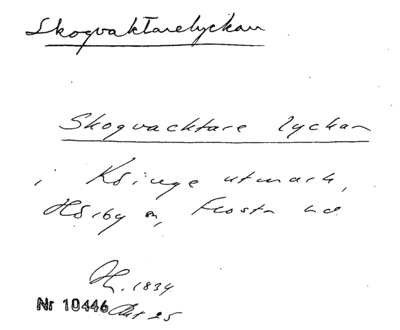 Skogvaktarelyckan
Skogvacktare lyckan
i Ksinge utmark,
Hörby sn, Frosta hd
H. 1834
Nr 10446 Akt 25